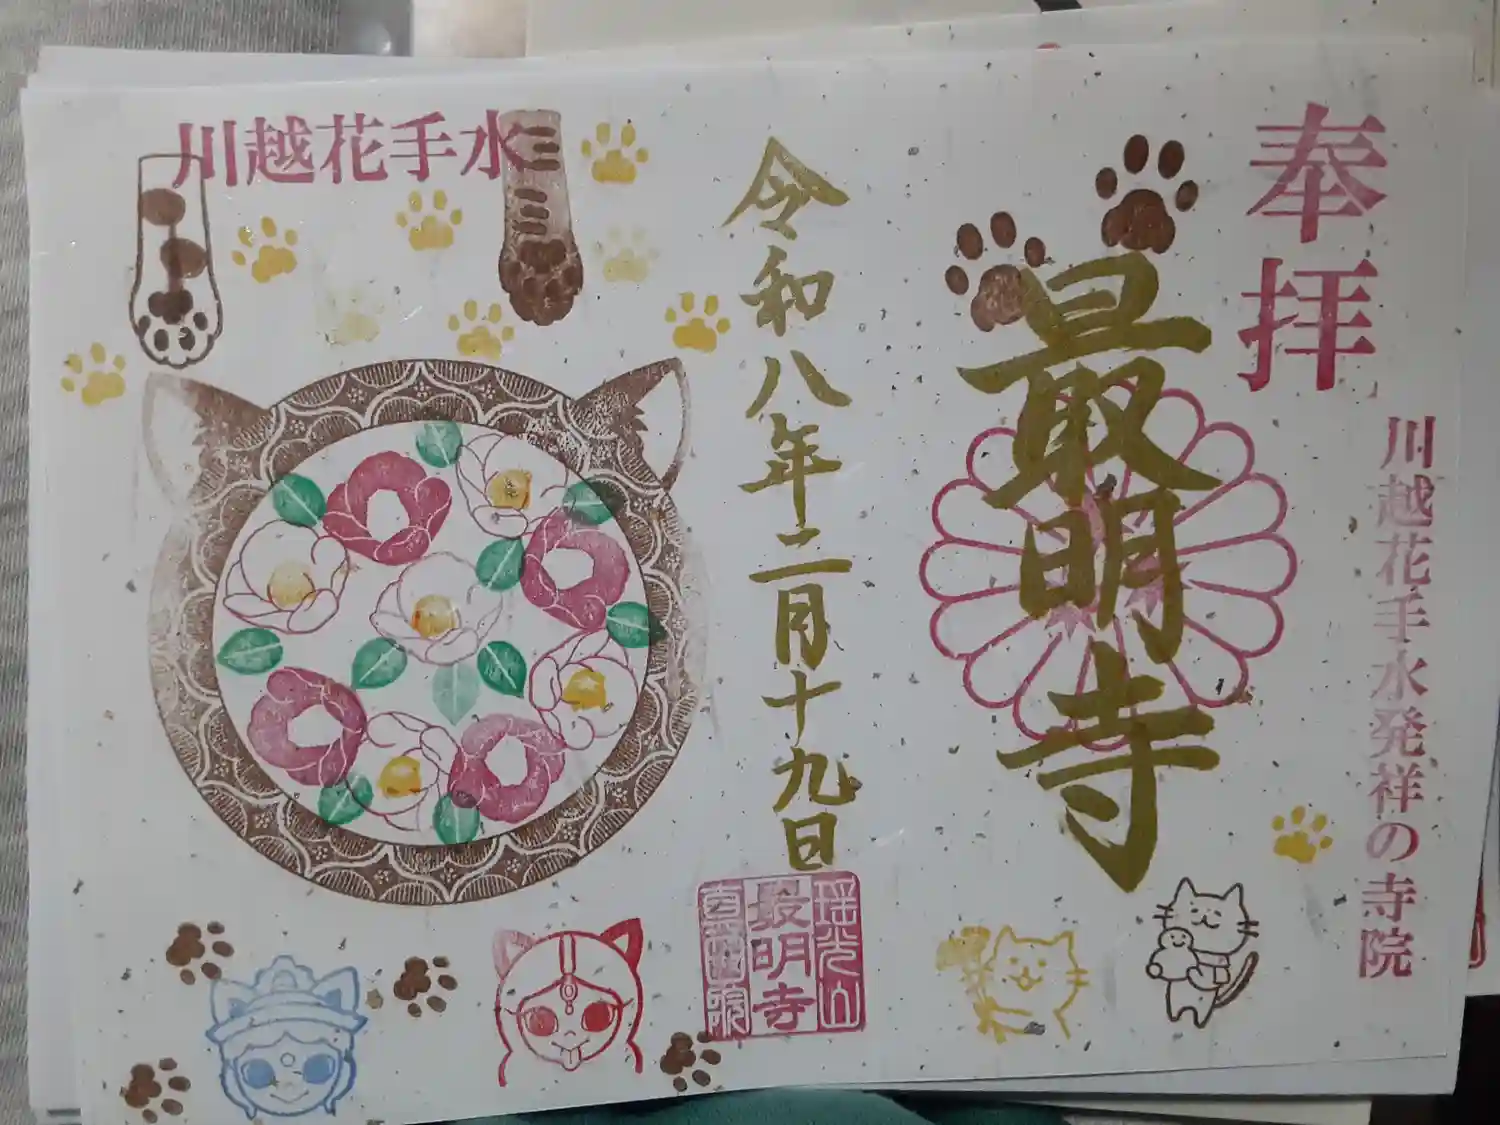 奉拝
川越花手水発祥の寺院
最明寺
令和八年二月十九日
瑶光山
最明寺
川越花手水